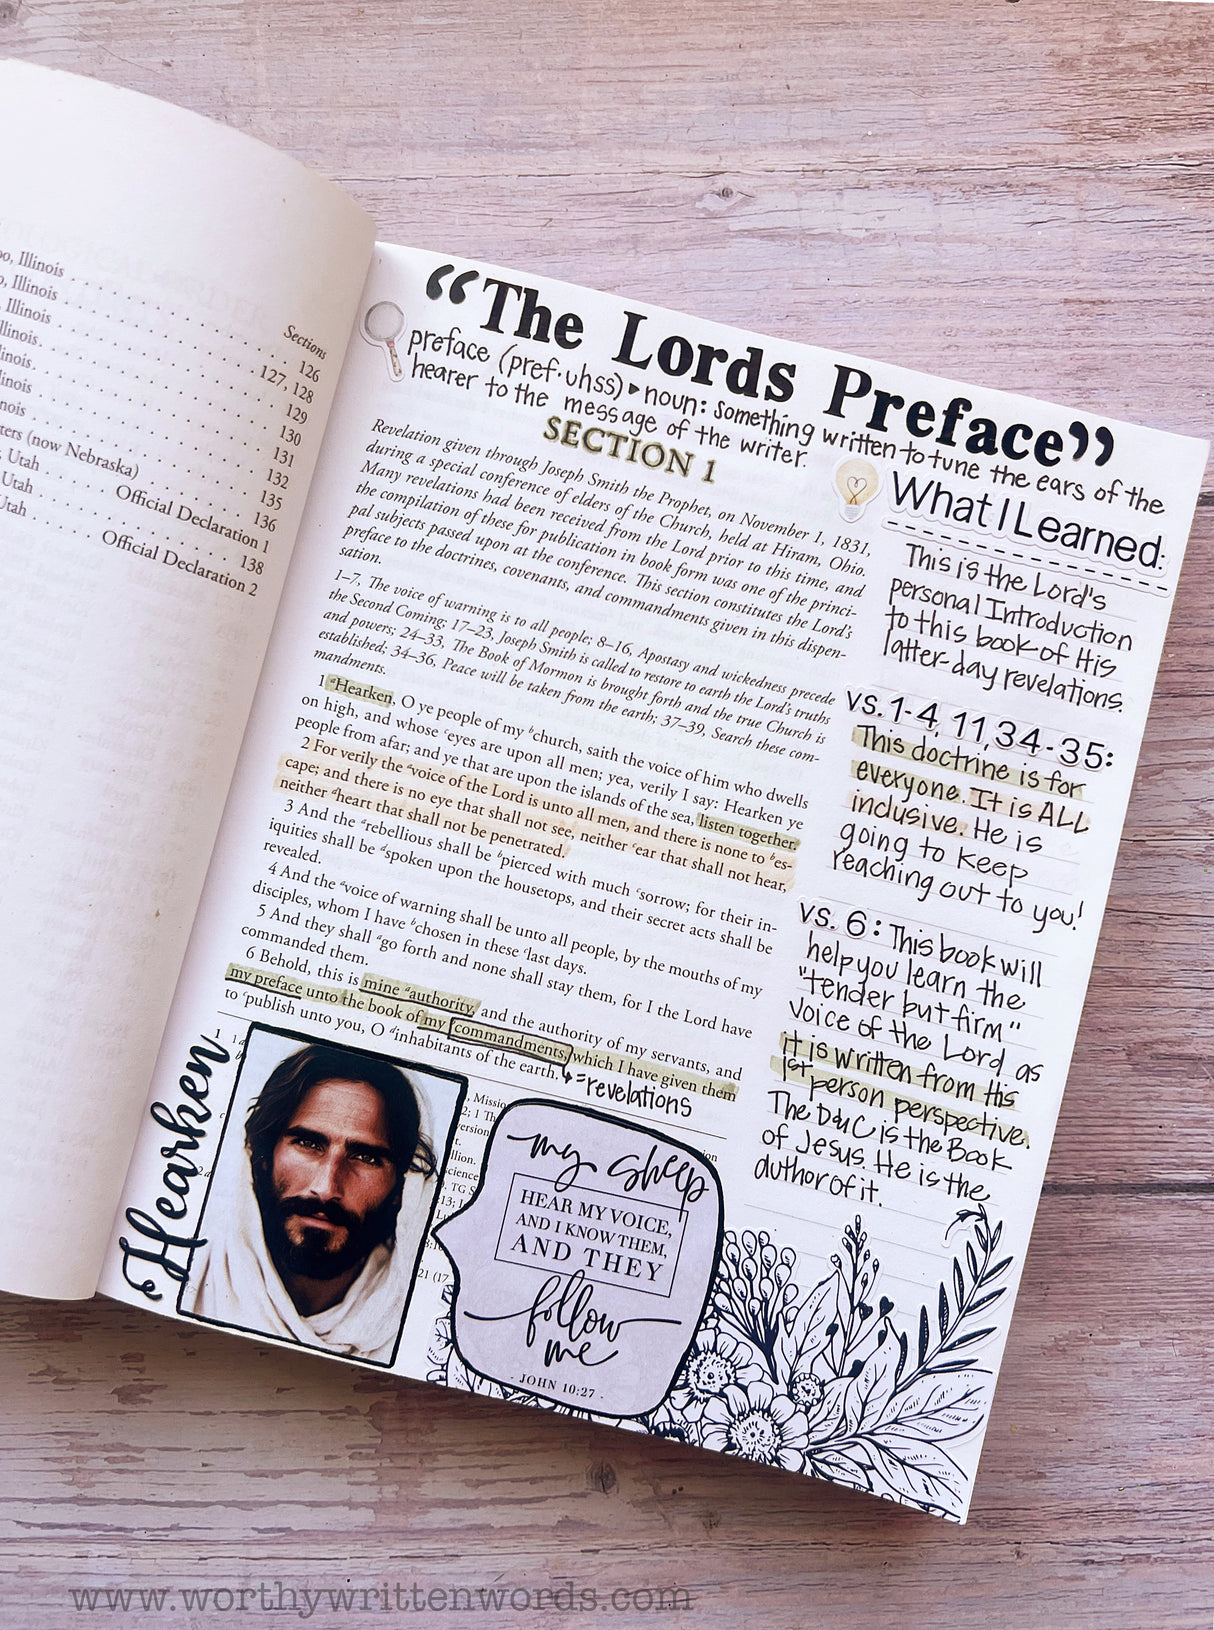 Sections
o, Illinois . . . 126
o, Illinois . . . 127, 128
Illinois . . . 129
llinois . . . 130
linois . . . 131
linois . . . 132
nois . . . 135
ters (now Nebraska) . . . 136
Utah . . . Official Declaration 1
Utah . . . 138
Utah . . . Official Declaration 2
“The Lords Preface”
preface (pref·uhss) ▸ noun: something written to tune the ears of the
hearer to the message of the writer.
SECTION 1
Revelation given through Joseph Smith the Prophet, on November 1, 1831,
during a special conference of elders of the Church, held at Hiram, Ohio.
Many revelations had been received from the Lord prior to this time, and
the compilation of these for publication in book form was one of the princi-
pal subjects passed upon at the conference. This section constitutes the Lord’s
preface to the doctrines, covenants, and commandments given in this dispen-
sation.
1–7, The voice of warning is to all people; 8–16, Apostasy and wickedness precede
the Second Coming; 17–23, Joseph Smith is called to restore to earth the Lord’s truths
and powers; 24–33, The Book of Mormon is brought forth and the true Church is
established; 34–36, Peace will be taken from the earth; 37–39, Search these com-
mandments.
1 aHearken, O ye people of my bchurch, saith the voice of him who dwells
on high, and whose ceyes are upon all men; yea, verily I say: Hearken ye
people from afar; and ye that are upon the islands of the sea, listen together.
2 For verily the avoice of the Lord is unto all men, and there is none to bes-
cape; and there is no eye that shall not see, neither cear that shall not hear,
neither dheart that shall not be penetrated.
3 And the arebellious shall be bpierced with much csorrow; for their in-
iquities shall be dspoken upon the housetops, and their secret acts shall be
revealed.
4 And the avoice of warning shall be unto all people, by the mouths of my
disciples, whom I have bchosen in these clast days.
5 And they shall ago forth and none shall stay them, for I the Lord have
commanded them.
6 Behold, this is mine aauthority, and the authority of my servants, and
my preface unto the book of my commandments, which I have given them
to cpublish unto you, O dinhabitants of the earth.
=revelations
What I Learned:
This is the Lord's
personal Introduction
to this book of His
latter-day revelations.
vs. 1-4, 11, 34-35:
This doctrine is for
everyone. It is ALL
inclusive. He is
going to keep
reaching out to you!
vs. 6: This book will
help you learn the
"tender but firm"
voice of the Lord as
it is written from His
1st person perspective.
The D&C is the Book
of Jesus. He is the
author of it.
Hearken
my sheep
HEAR MY VOICE,
AND I KNOW THEM,
AND THEY
follow
me
- JOHN 10:27 -
www.worthywrittenwords.com